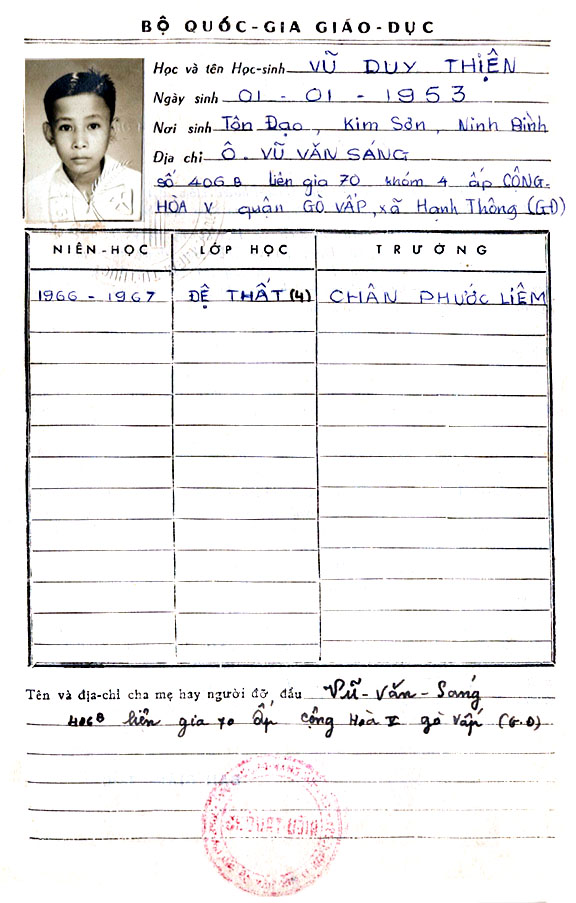 BỘ QUỐC-GIA GIÁO-DỤC
Học và tên Học-sinh VŨ DUY THIỆN
Ngày sinh 01 - 01 - 1953
Nơi sinh Tôn Đạo, Kim Sơn, Ninh Bình
Địa chỉ Ô. VŨ VĂN SÁNG
số 406B liên gia 70 khóm 4 ấp CỘNG-
HÒA V quận GÒ VẤP, xã Hạnh Thông (GĐ)
NIÊN-HỌC LỚP HỌC TRƯỜNG
1966 - 1967 ĐỆ THẤT (4) CHÂN PHƯỚC LIÊM
Tên và địa-chỉ cha mẹ hay người đỡ đầu Vũ-Văn-Sáng
406B liên gia 70 Ấp Cộng Hoà V gò Vấp (G.Đ)